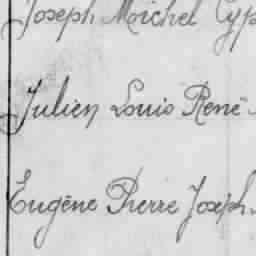 Joseph Michel Cyp
Julien Louis René
Eugène Pierre Joseph